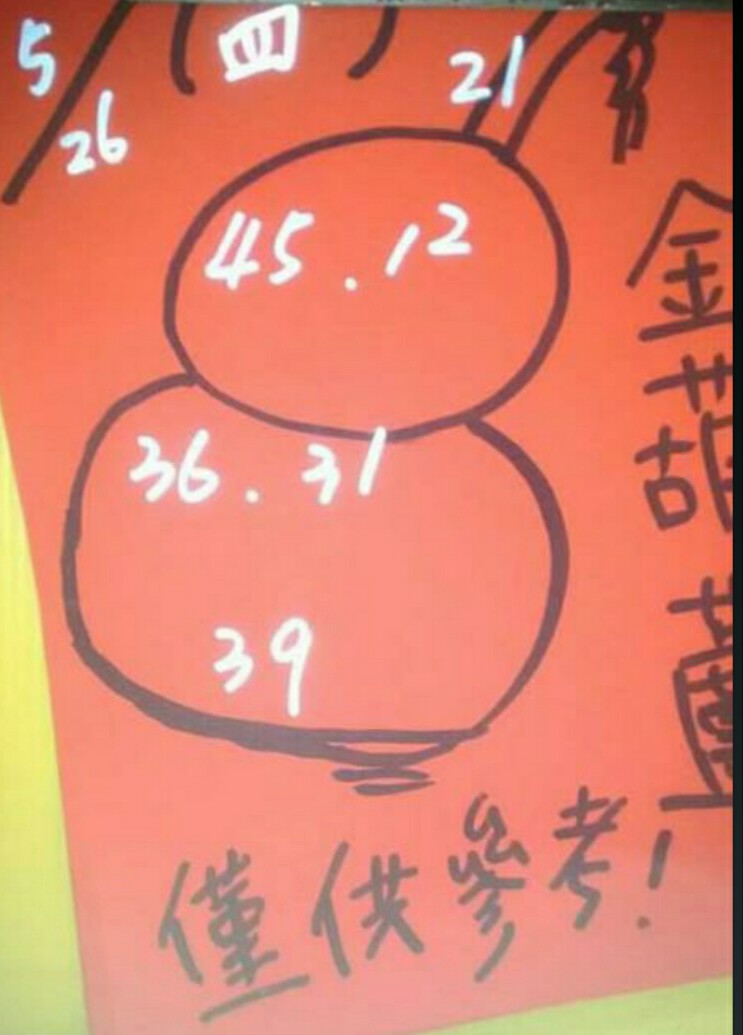 5/26 (四)
21
45.12
36.31
39
金葫蘆
僅供參考!